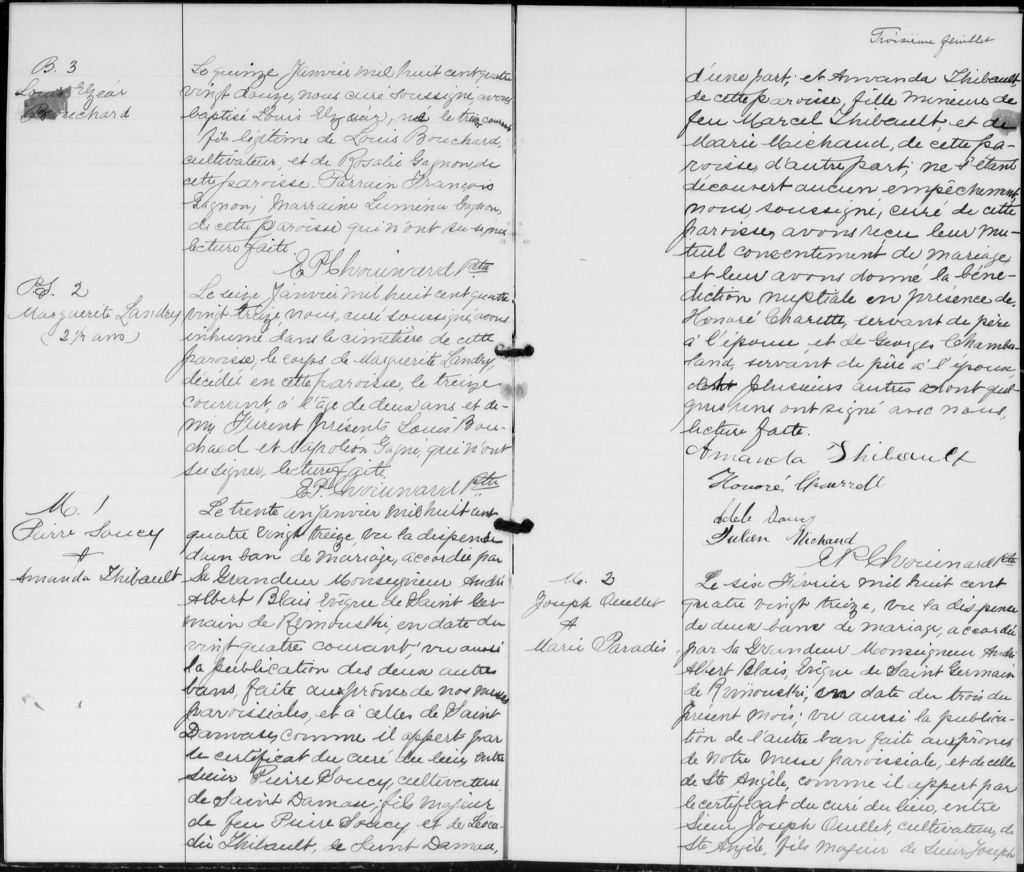 B. 3
Louis Elzéar
Bouchard
Le quinze Janvier mil huit cent quatre
vingt douze, nous curé soussigné, avons
baptisé Louis Elzéar, né le treize courant
fils légitime de Louis Bouchard,
cultivateur, et de Rosalie Gagnon, de
cette paroisse. Parrain François
Gagnon; Marraine Luména Gagnon,
de cette paroisse qui n'ont su signer
lecture faite.
E P Chouinard Ptre
S. 2
Marguerite Landry
(2 ½ ans)
Le seize Janvier mil huit cent quatre
vingt treize, nous, curé soussigné, avons
inhumé dans le cimetière de cette
paroisse, le corps de Marguerite Landry,
décédée en cette paroisse, le treize
courant, à l'âge de deux ans et de-
mi. Furent présents Louis Bou-
chard et Napoléon Gagné, qui n'ont
su signer, lecture faite.
E. P. Chouinard Ptre
M. 1
Pierre Soucy
+
Amanda Thibault
Le trente un Janvier mil huit cent
quatre vingt treize, vu la dispense
d'un ban de mariage, accordée par
Sa Grandeur Monseigneur André
Albert Blais Evêque de Saint Ger-
main de Rimouski, en date du
vingt quatre courant; vu aussi
la publication des deux autres
bans, faite aux prônes de nos messes
paroissiales, et à celles de Saint
Damase, comme il appert par
le certificat du curé du lieu, entre
sieur Pierre Soucy, cultivateur,
de Saint Damase, fils majeur
de feu Pierre Soucy et de Léoca-
die Thibault, de Saint Damase,
Troisième feuillet
d'une part; et Amanda Thibault,
de cette paroisse, fille mineure de
feu Marcel Thibault, et de
Marie Michaud, de cette pa-
roisse, d'autre part; ne s'étant
découvert aucun empêchement,
nous, soussigné, curé de cette
paroisse, avons reçu leur mu-
tuel consentement de mariage,
et leur avons donné la béné-
diction nuptiale en présence de
Honoré Charette, servant de père
à l'épouse et de Georges Chambe-
land, servant de père à l'époux,
plusieurs autres dont quel-
ques uns ont signé avec nous,
lecture faite.
Amanda Thibault
Honoré Charrett
Adele Soucy
Julien Michaud
E P Chouinard Ptre
M. 2
Joseph Ouellet
+
Marie Paradis
Le six Février mil huit cent
quatre vingt treize, vu la dispense
de deux bans de mariage, accordée
par Sa Grandeur Monseigneur André
Albert Blais, Evêque de Saint Germain
de Rimouski, en date du trois du
présent mois; vu aussi la publica-
tion de l'autre ban faite aux prônes
de notre Messe paroissiale, et de celle
de Ste Angèle, comme il appert par
le certificat du curé du lieu, entre
Sieur Joseph Ouellet, cultivateur, de
Ste Angèle, fils majeur de Sieur Joseph